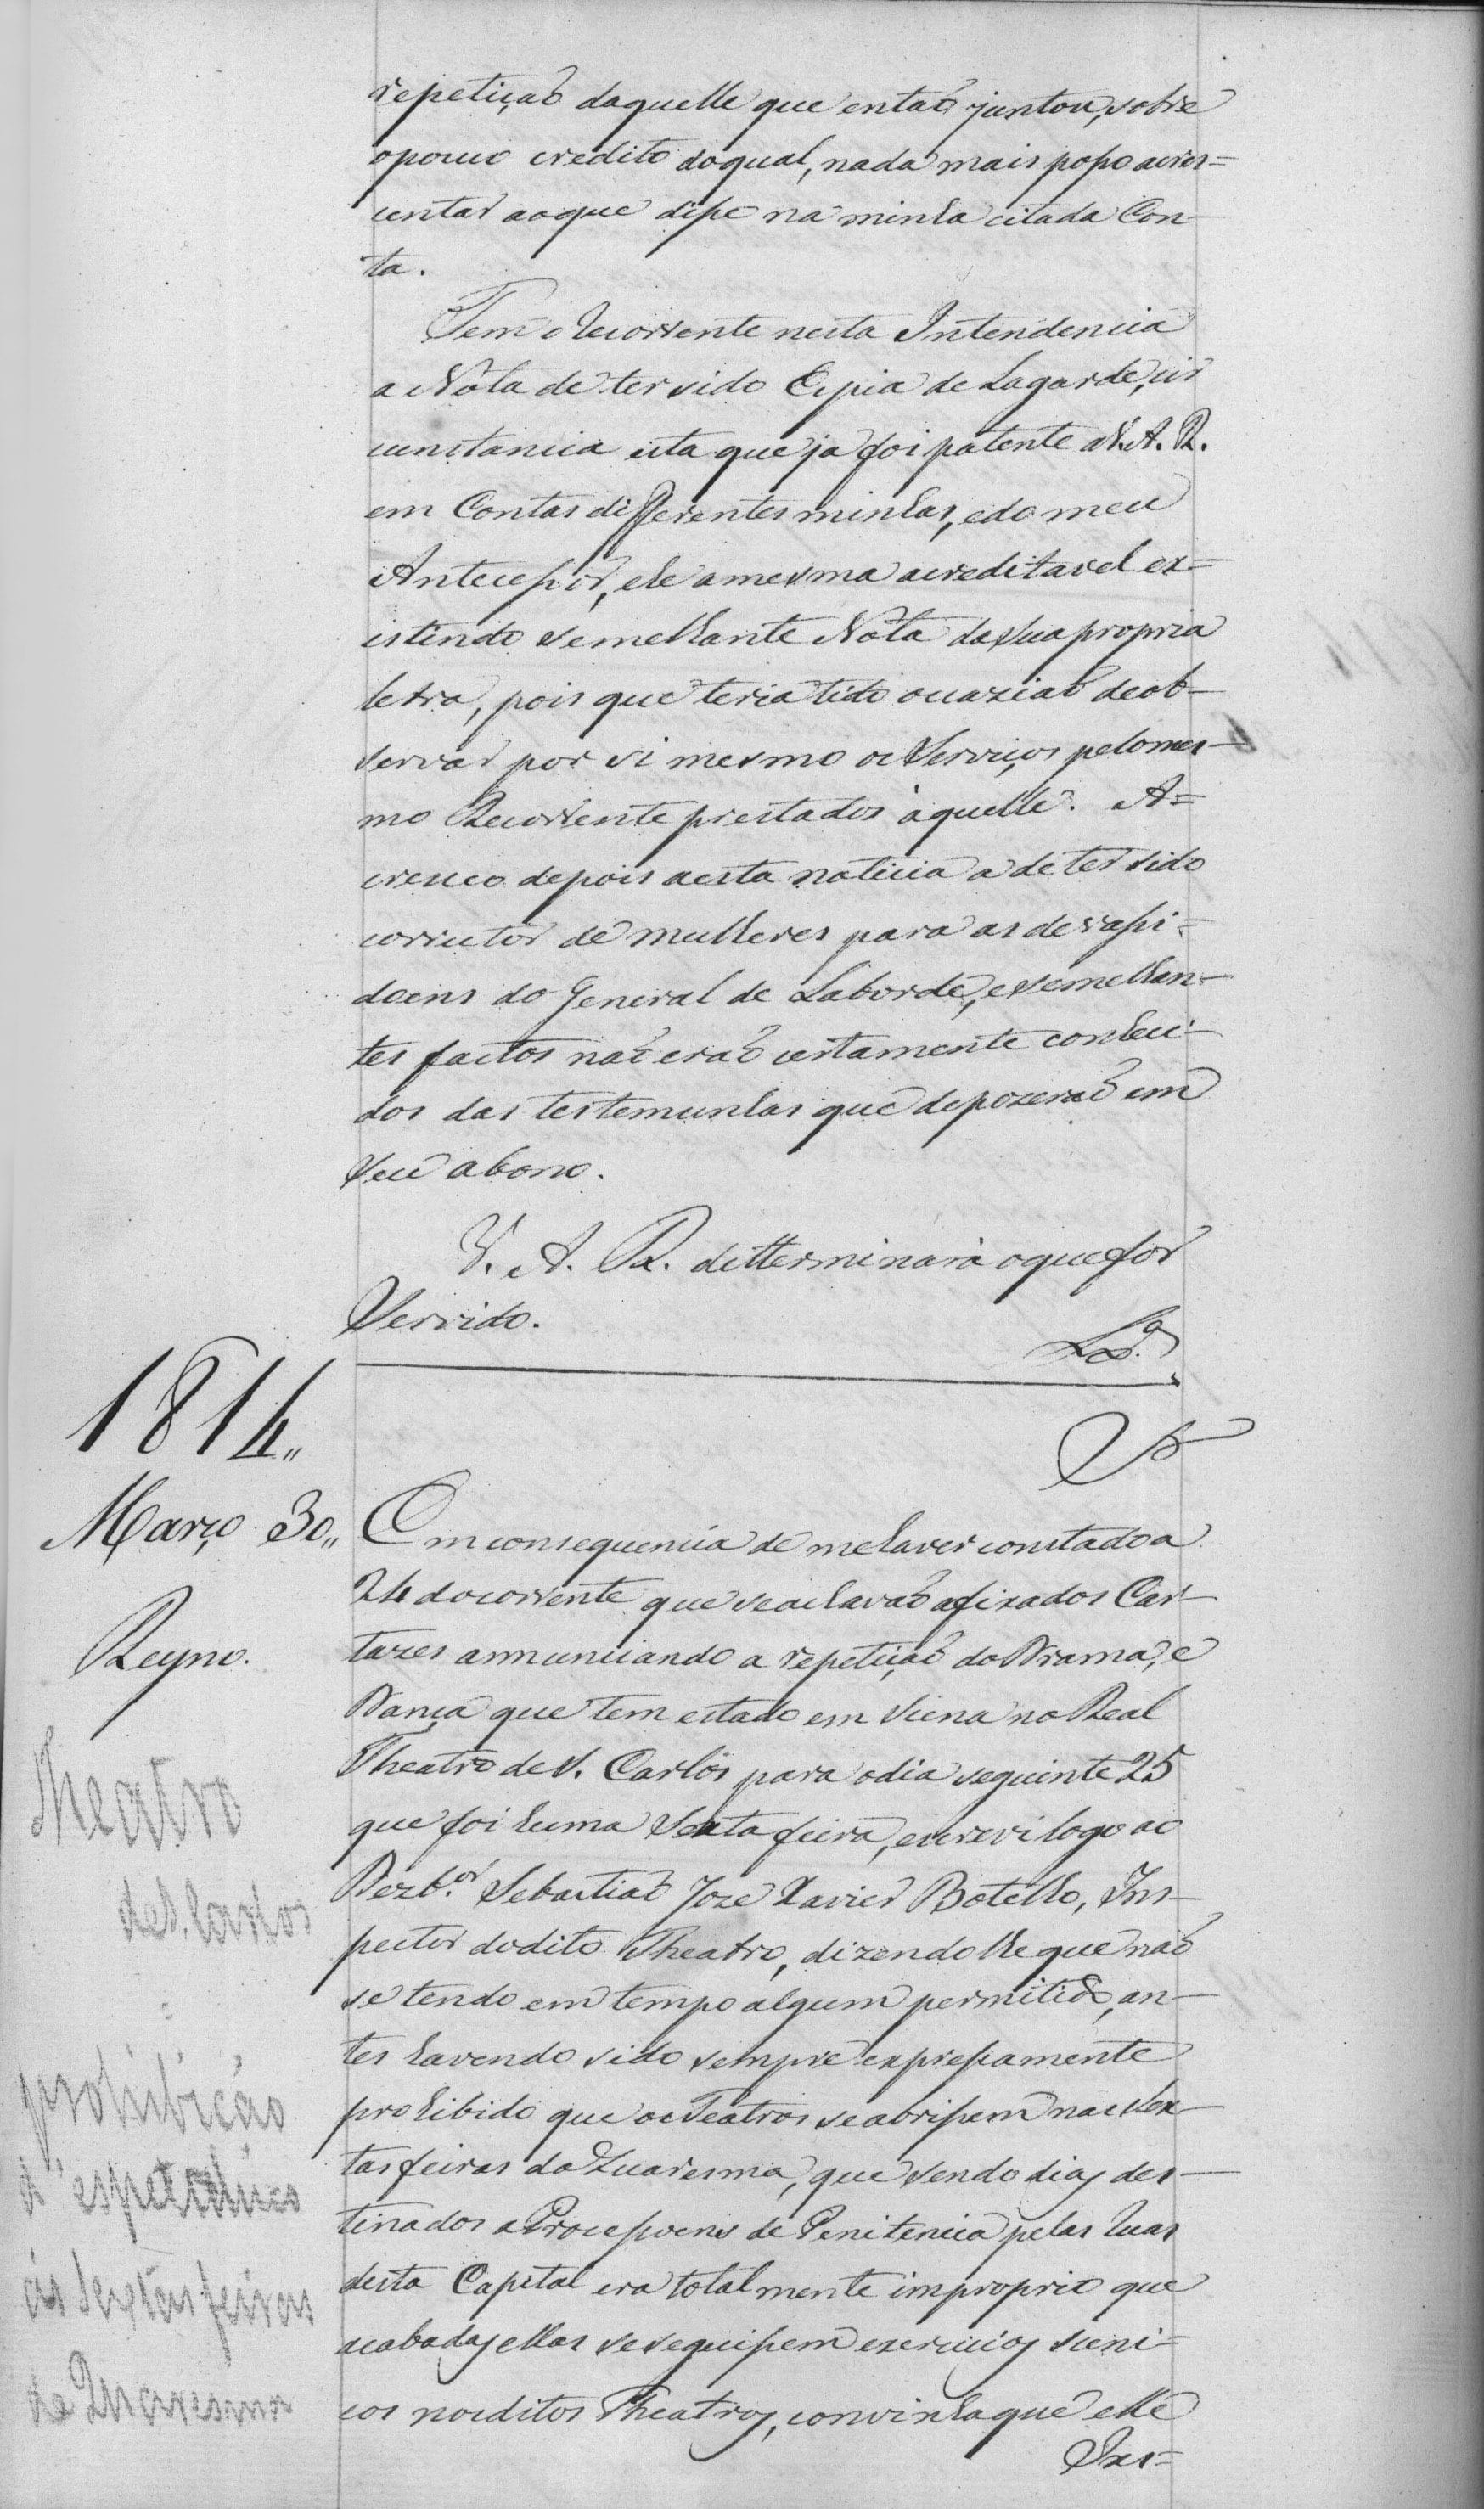 repetiçaõ daquelle que entaõ juntou, sobre
opouco credito doqual, nada mais posso acres=
centar aoque disse na minha citada Con
ta.
Tem o Recorrente nesta Intendencia
a Nota de ter sido Espia de Lagarde, cir
cunstancia esta que ja foi patente a V. A. R.
em Contas differentes minhas, e do meu
Antecessor, e he a mesma acreditavel ex=
istindo semelhante Nota da sua propria
letra, pois que teria tido occaziaõ de ob-
servar por si mesmo os Serviços pelo mes-
mo Recorrente prestados àquelle. A=
cresceo depois a esta noticia a de ter sido
corructor de mulheres para as
doens do General de Laborde, e semelhan-
tes factos naõ eraõ certamente conheci-
dos das testemunhas que depozeraõ em
seu abono.
V. A. R. detterminarà o que for
Servido.
1814,,
Março 30,,
Reyno.
Theatro
de S. Carlos
prohibição
d'espetaculos
ás sextas feiras
de Quaresma
Em consequencia de me haver constado a
24 do corrente que se achavaõ afixados Car-
tazes annunciando a repetiçaõ do Drama, e
Dança que tem estado em Scena no Real
Theatro de S. Carlos para o dia seguinte 25
que foi huma Sexta feira, escrevi logo ao
Dezb.or Sebastiaõ Joze Xavier Botelho, Ins-
pector do dito Theatro, dizendo lhe que naõ
se tendo em tempo algum permitido, an-
tes havendo sido sempre expressamente
prohibido que os Teatros se abrissem nas Sex-
tas feiras da Quaresma, que sendo dias des-
tinados a Procissoens de Penitencia pelas Ruas
desta Capital era totalmente improprio que
acabadas ellas se seguissem exercicios sceni=
cos nos ditos Theatros, convinha que elle